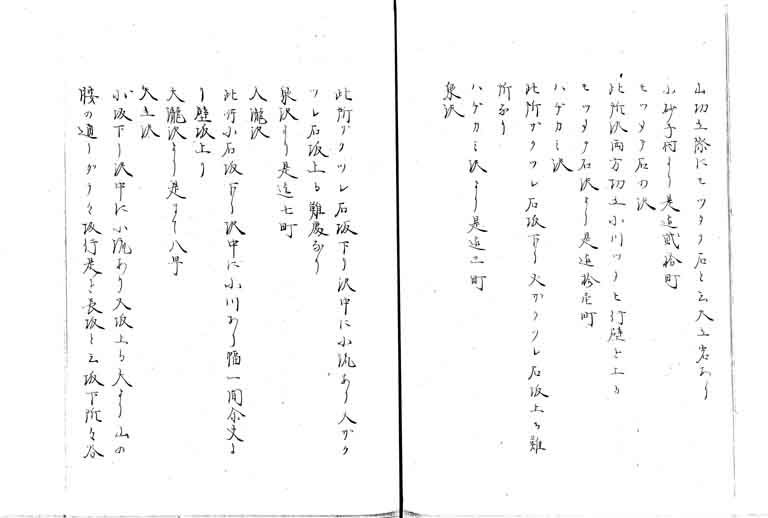 山切立際にモツタク石と云大立岩あり
小砂子村より是迄貳拾町
モツタク石の沢
此所沢両方切立小川ツタヒ行壁を上る
モツタク石沢より是迄拾壱町
ハゲカミ沢
此所ガクツレ石坂下り又ガクツレ石坂上る難
所なり
ハゲカミ沢より是迄三町
泉沢
此所ガクツレ石坂下り沢中に小流あり又ガク
ツレ石坂上る難処なり
泉沢より是迄七町
大瀧沢
此所小石坂下り沢中に小川あり幅一間余夫よ
り壁坂上り
大瀧沢より是まて八町
大立沢
小坂下り沢中に小流あり又坂上る夫より山の
腰の通りダラ々坂行是を長坂と云坂下所々谷